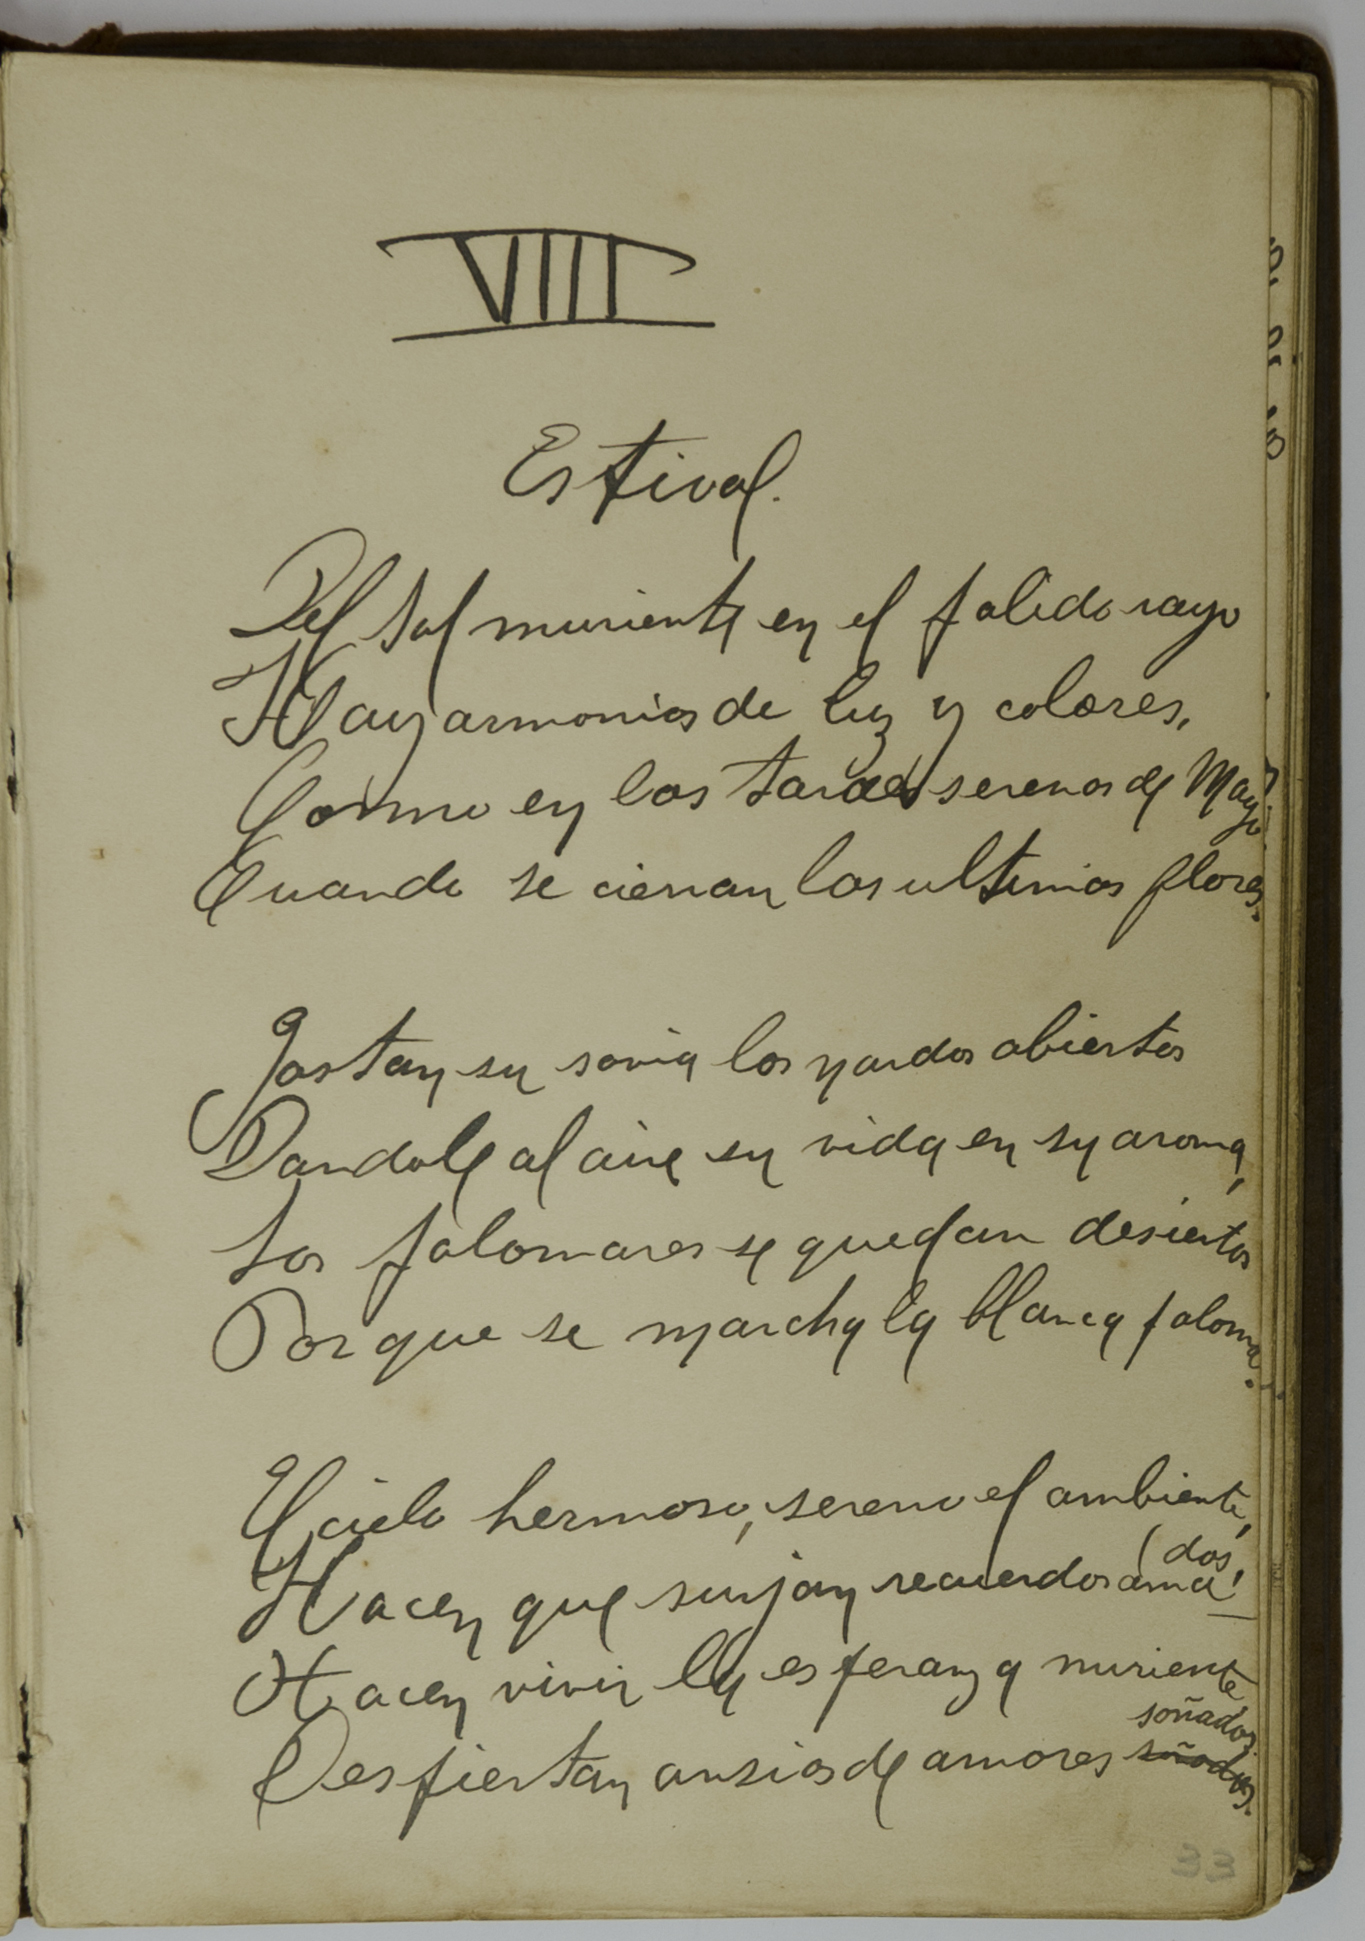 VIII
Estival.
Del sol muriente en el palido rayo
Hay armonias de luz y colores,
Como en las tardes serenas de Mayo
Cuando se cierran las ultimas flores.
Gastan su savia los nardos abiertos
Dandole al aire su vida en su aroma,
Los palomares se quedan desiertos
Porque se marcha la blanca paloma.
El cielo hermoso, sereno el ambiente,
(dos,
Hacen que surjan recuerdos ama-
Hacen vivir la esperanza muriente
soñados.
Despiertan ansias de amores soñados.
33